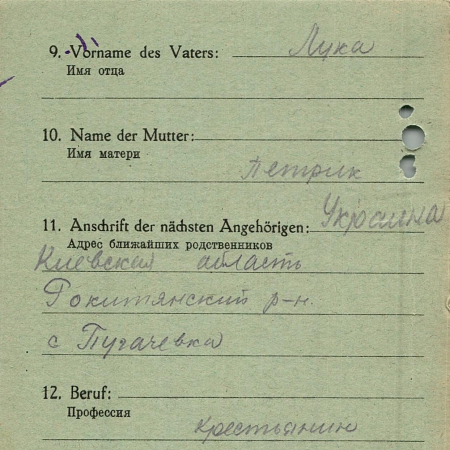 9. Vorname des Vaters: Лука
Имя отца
10. Name der Mutter:
Имя матери
Петрик
11. Anschrift der nächsten Angehörigen: Украина
Адрес ближайших родственников
Киевская область
Рокитянский р-н.
с Пугачевка
12. Beruf:
Профессия
крестьянин